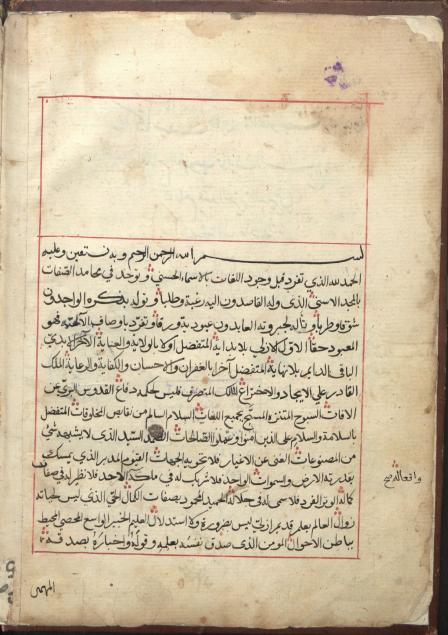 بسم الله الرحمن الرحيم وبه نستعين وعليه
الحمد لله الذي تفرد قبل وجود اللغات بالاسماء الحسنى وتوحد في محامد الصفات
بالمجد الاسنى الذي وله القاصدون اليه رغبة وطلبا وتوله بذكره الواجدون
شوقا وطربا وتأله لجبروته العابدون عبودية ورقا وتفرد باوصاف الالهية فهو
المعبود حقا الاول الازلي بلا بداية المتفضل اولا بالولاية والعناية الآخر الابدي
الباقي الدايم بلا نهاية المتفضل آخرا بالغفران والاحسان والكفاية والرعاية الملك
القادر على الايجاد والاختراع المالك المتصرف فليس لحكمه دفاع القدوس البري عن
الافات السبوح المتنزه المسبح بجميع اللغات السلام السالم من نقايص المخلوقات المتفضل
بالسلامة والسلام على الذين امنوا وعملوا الصالحات السيد الذي لا يشبهه شيء
من المصنوعات الغنى عن الاغيار فلا تحويه الجهات القيوم المدبر الذي يمسك
بقدرته الارض والسموات الواحد فلا شريك له في ملكه الاحد فلا نظير له في صفات
كماله الوتر الفرد فلا سمى له في جلاله الحميد المحمود بصفات الكمال الحي الذي ليس لحياته
زوال العالم بعلم قديم ازلي ليس بضرورة ولا استدلال العليم الخبير الواسع المحصي المحيط
بباطن الاحوال المومن الذي صدق نفسه بعلمه وقوله واخباره بصدقه
وافعاله صح
المهيمن